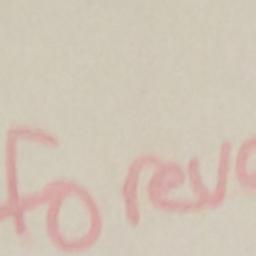 fo rev